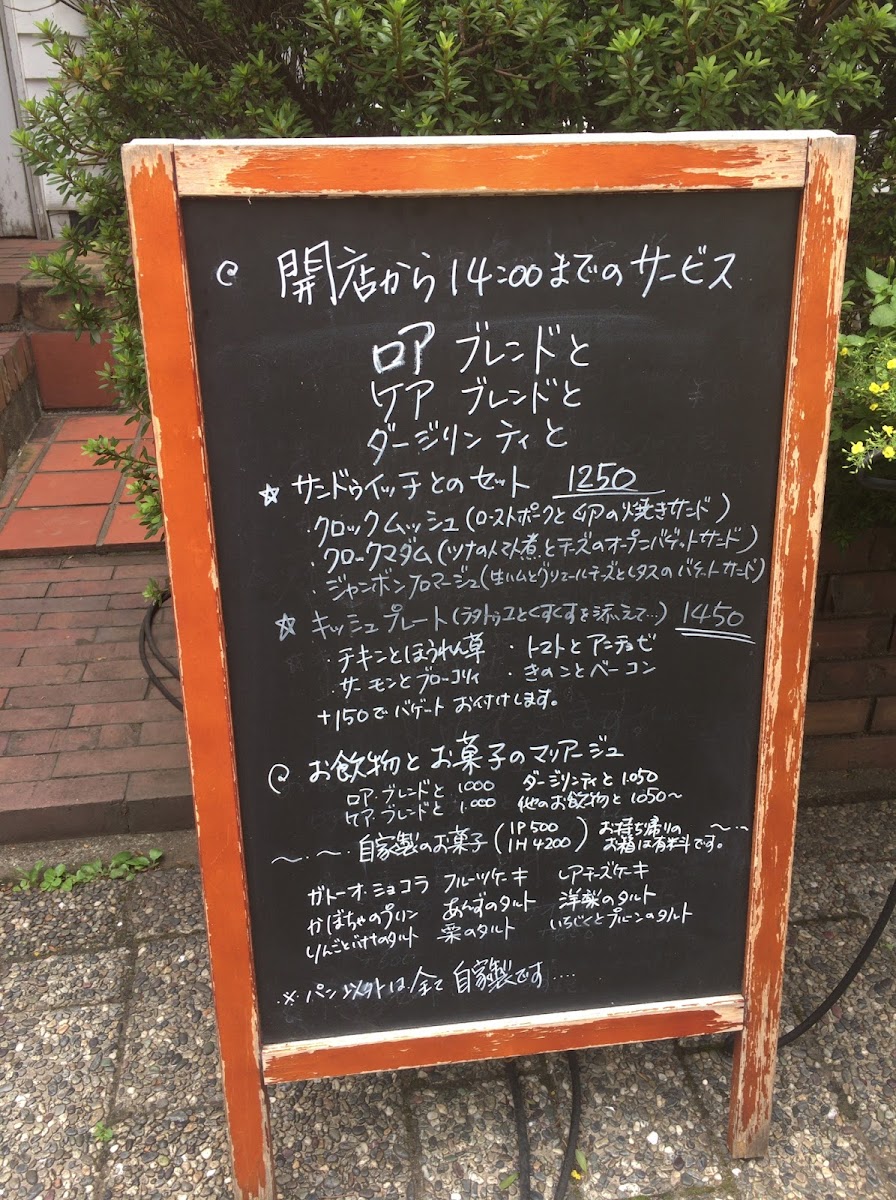 開店から14:00までのサービス
ロア ブレンドと
ケア ブレンドと
ダージリン ティと
☆ サンドゥイッチとのセット 1250
・クロックムッシュ(ローストポークと の焼きサンド)
・クロックマダム(ツナのトマト煮とチーズのオープンバゲットサンド)
・ジャンボンフロマージュ(生ハムとグリュエールチーズとレタスのバゲットサンド)
☆ キッシュプレート(ラタトゥユとくすくすを添えて…) 1450
・チキンとほうれん草 ・トマトとアンチョビ
・サーモンとブロッコリィ ・きのことベーコン
+150でバゲットお付けします。
お飲物とお菓子のマリアージュ
ロア・ブレンドと 1000 ダージリンティと 1.050
ケア・ブレンドと 1.000 他のお飲物と 1050〜
〜・〜・自家製のお菓子(1P 500 1H 4200) お持ち帰りのお箱は有料です。〜・・
ガトーオ・ショコラ フルーツケーキ レアチーズケーキ
かぼちゃのプリン あんずのタルト 洋梨のタルト
りんごとバナナのタルト 栗のタルト いちじくとプルーンのタルト
※ パン以外は全て自家製です…